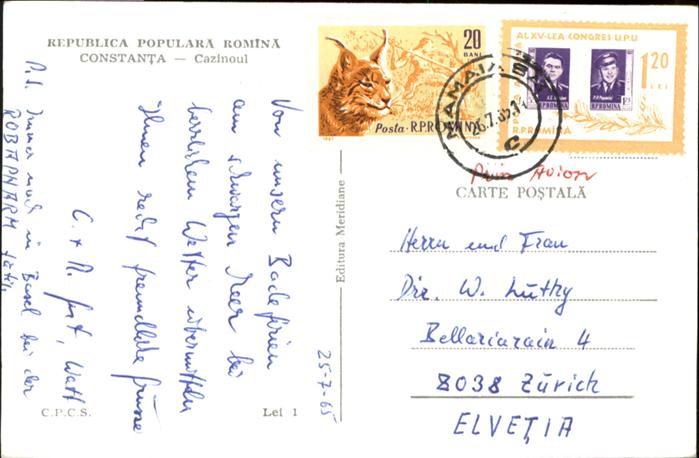 REPUBLICA POPULARĂ ROMÎNĂ
CONSTANȚA — Cazinoul
20
BANI
Posta · R.P.ROMÎNĂ
AL XV-LEA CONGRES U.P.U
1 20
LEI
R.P.ROMÎNA
POSTA
MAMAIA
26.7.65
C
Prin Avion
CARTE POȘTALĂ
Von unsern Badeferien
am schwarzen Meer bei
herrlichem Wetter übermitteln
Ihnen recht freundliche Grüsse
C. + R. Watt
P.S. Immer noch in Basel bei der
ROBAPHARM
25-7-65
Editura Meridiane
Herrn und Frau
Dir. W. Luthy
Bellariarain 4
8038 Zürich
ELVEȚIA
C.P.C.S.
Lei 1